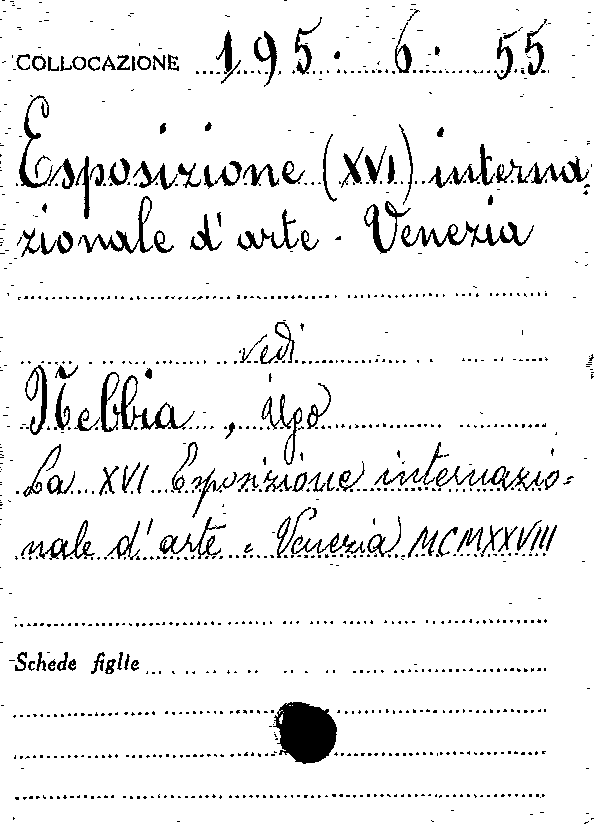 COLLOCAZIONE 195. 6. 55
Esposizione (XVI) interna=
zionale d'arte - Venezia
vedi
Nebbia, Ugo
La XVI Esposizione internazio=
nale d'arte - Venezia MCMXXVIII
Schede figlie